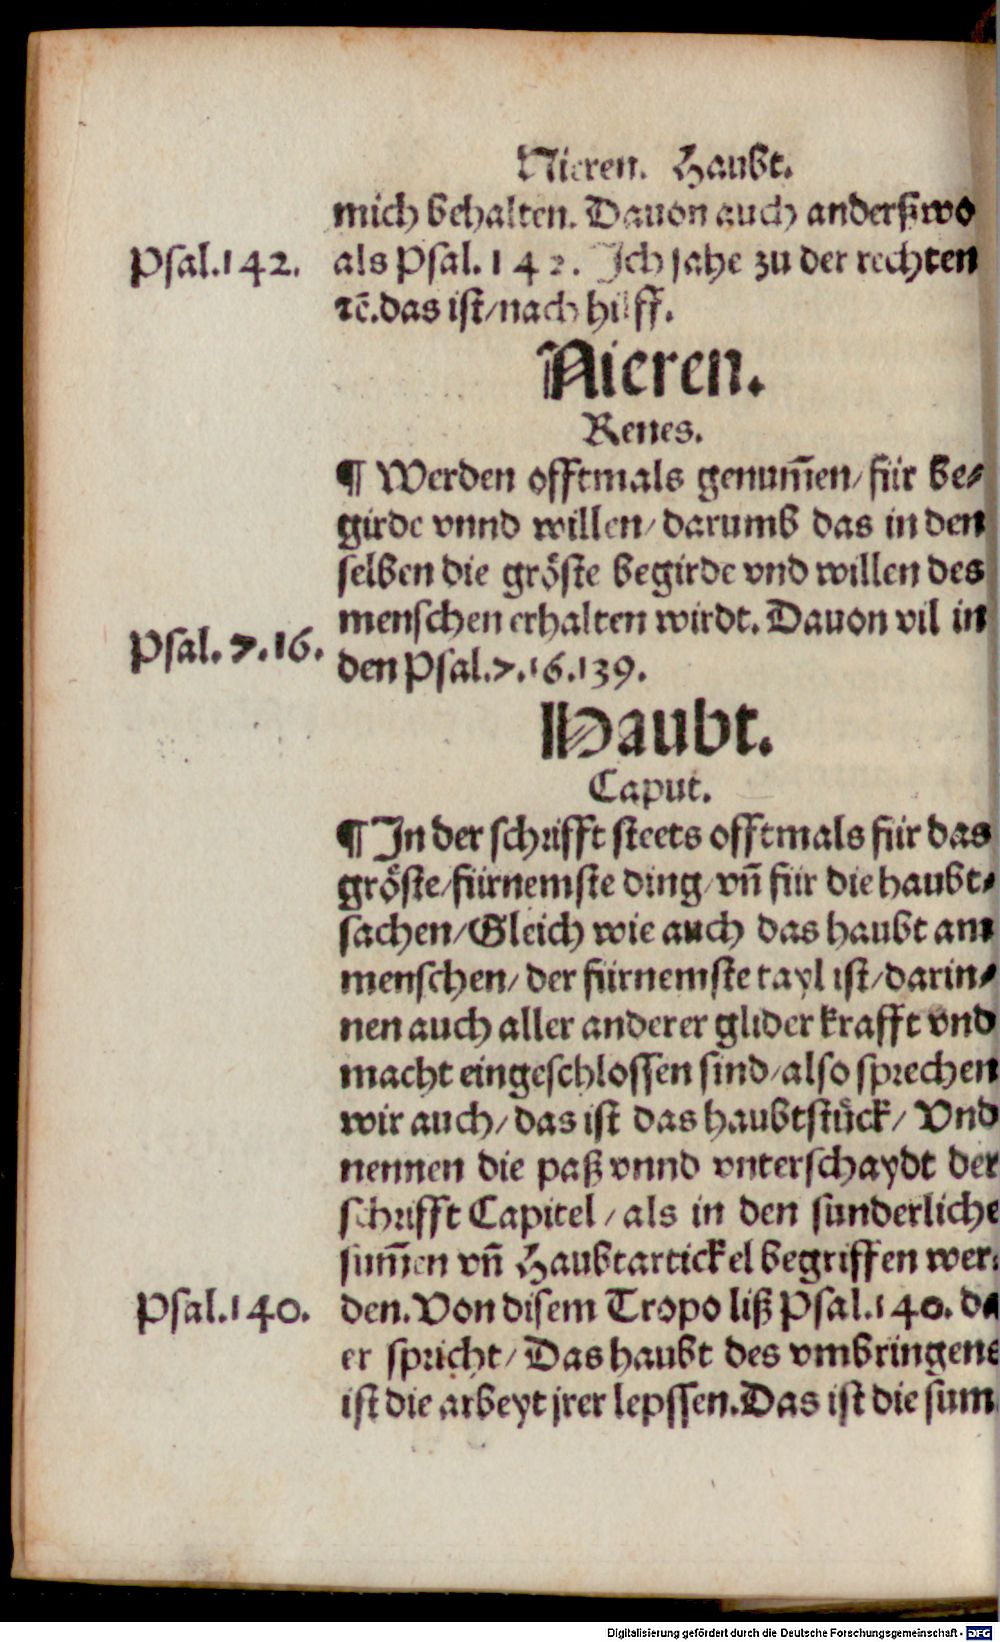 Nieren. Haubt.
mich behalten. Dauon auch anderßwo
Psal.142. als Psal. 142. Ich sahe zu der rechten
ꝛc̄.das ist/nach hilff.
Nieren.
Renes.
¶ Werden offtmals genum̄en/für be⸗
girde vnnd willen/darumb das in den
selben die gröste begirde vnd willen des
menschen erhalten wirdt. Dauon vil in
Psal. 7.16. den Psal.7.16.139.
Haubt.
Caput.
¶ In der schrifft steets offtmals für das
gröste/fürnemste ding/vn̄ für die haubt⸗
sachen/Gleich wie auch das haubt am
menschen/der fürnemste tayl ist/darin⸗
nen auch aller anderer glider krafft vnd
macht eingeschlossen sind/also sprechen
wir auch/das ist das haubtstück/Vnd
nennen die paß vnnd vnterschaydt der
schrifft Capitel/als in den sunderliche
sum̄en vn̄ Haubtartickel begriffen wer⸗
Psal.140. den. Von disem Tropo liß Psal.140. da
er spricht/Das haubt des vmbringens
ist die arbeyt jrer lepssen. Das ist die sum
Digitalisierung gefördert durch die Deutsche Forschungsgemeinschaft - DFG